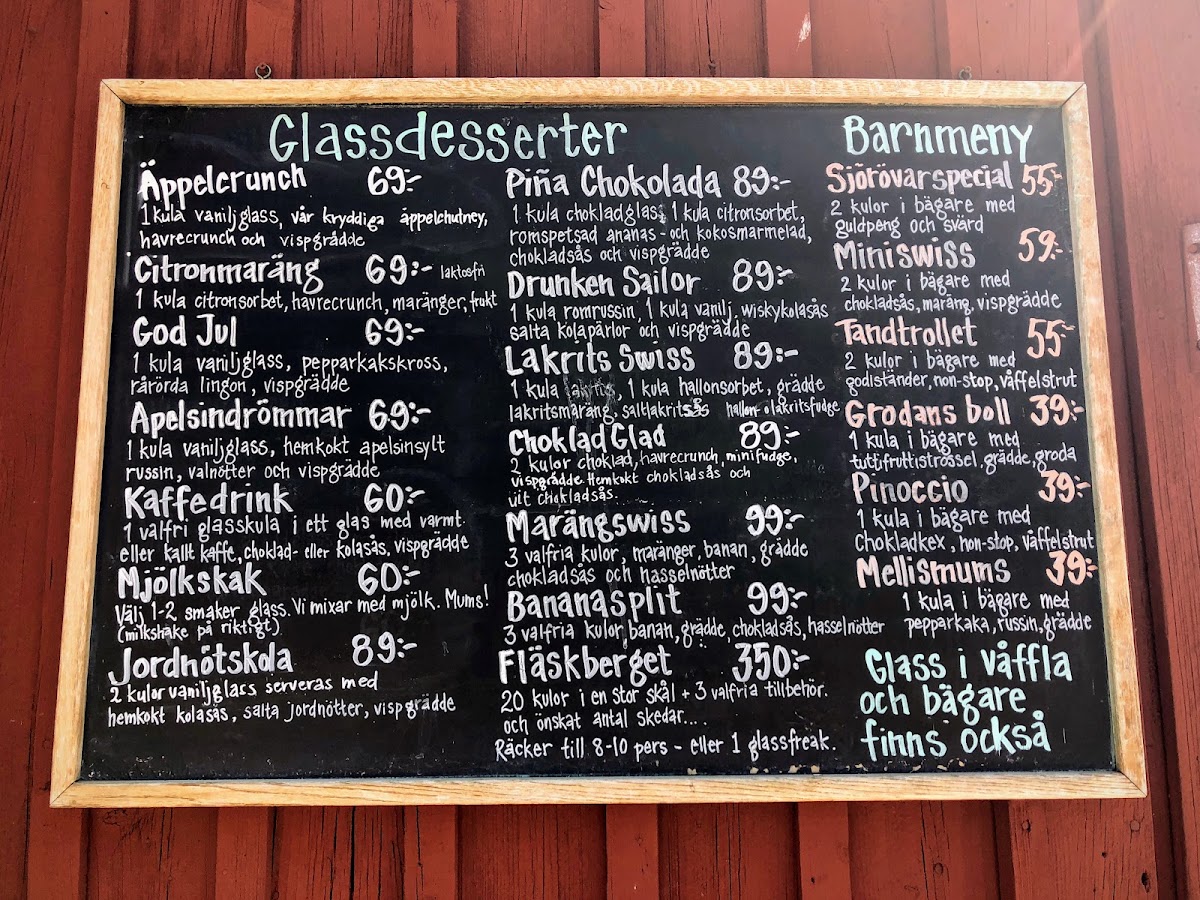 Glassdesserter
Äppelcrunch 69:-
1 kula vaniljglass, vår kryddiga äppelchutney,
havrecrunch och vispgrädde
Citronmaräng 69:- laktosfri
1 kula citronsorbet, havrecrunch, maränger, frukt
God Jul 69:-
1 kula vaniljglass, pepparkakskross,
rårörda lingon, vispgrädde
Apelsindrömmar 69:-
1 kula vaniljglass, hemkokt apelsinsylt
russin, valnötter och vispgrädde
Kaffedrink 60:-
1 valfri glasskula i ett glas med varmt.
eller kallt kaffe, choklad- eller kolasås, vispgrädde
Mjölkskak 60:-
Välj 1-2 smaker glass. Vi mixar med mjölk. Mums!
(milkshake på riktigt)
Jordnötskola 89:-
2 kulor vaniljglass serveras med
hemkokt kolasås, salta jordnötter, vispgrädde
Piña Chokolada 89:-
1 kula chokladglass, 1 kula citronsorbet,
romspetsad ananas- och kokosmarmelad,
chokladsås och vispgrädde
Drunken Sailor 89:-
1 kula romrussin, 1 kula vanilj, wiskykolasås
salta kolapärlor och vispgrädde
Lakrits Swiss 89:-
1 kula lakrits, 1 kula hallonsorbet, grädde
lakritsmaräng, saltlakritssås hallon- o lakritsfudge
Choklad Glad 89:-
2 kulor choklad, havrecrunch, minifudge,
vispgrädde. Hemkokt chokladsås och
vit chokladsås.
Marängswiss 99:-
3 valfria kulor, maränger, banan, grädde
chokladsås och hasselnötter
Bananasplit 99:-
3 valfria kulor, banan, grädde, chokladsås, hasselnötter
Fläskberget 350:-
20 kulor i en stor skål + 3 valfria tillbehör.
och önskat antal skedar....
Räcker till 8-10 pers - eller 1 glassfreak.
Barnmeny
Sjörövarspecial 55:-
2 kulor i bägare med
guldpeng och svärd
Miniswiss 59:-
2 kulor i bägare med
chokladsås, maräng, vispgrädde
Tandtrollet 55:-
2 kulor i bägare med
godiständer, non-stop, våffelstrut
Grodans boll 39:-
1 kula i bägare med
tuttifruttiströssel, grädde, groda
Pinoccio 39:-
1 kula i bägare med
chokladkex, non-stop, våffelstrut
Mellismums 39:-
1 kula i bägare med
pepparkaka, russin, grädde
Glass i våffla
och bägare
finns också